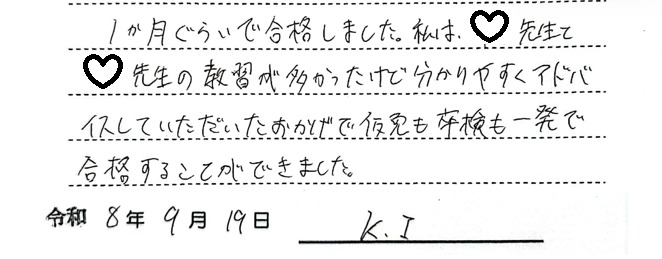 1か月ぐらいで合格しました。私は、♡先生と
♡先生の教習が多かったけど分かりやすくアドバ
イスしていただいたおかげで仮免も卒検も一発で
合格することができました。
令和 8年 9月 19日 K.I